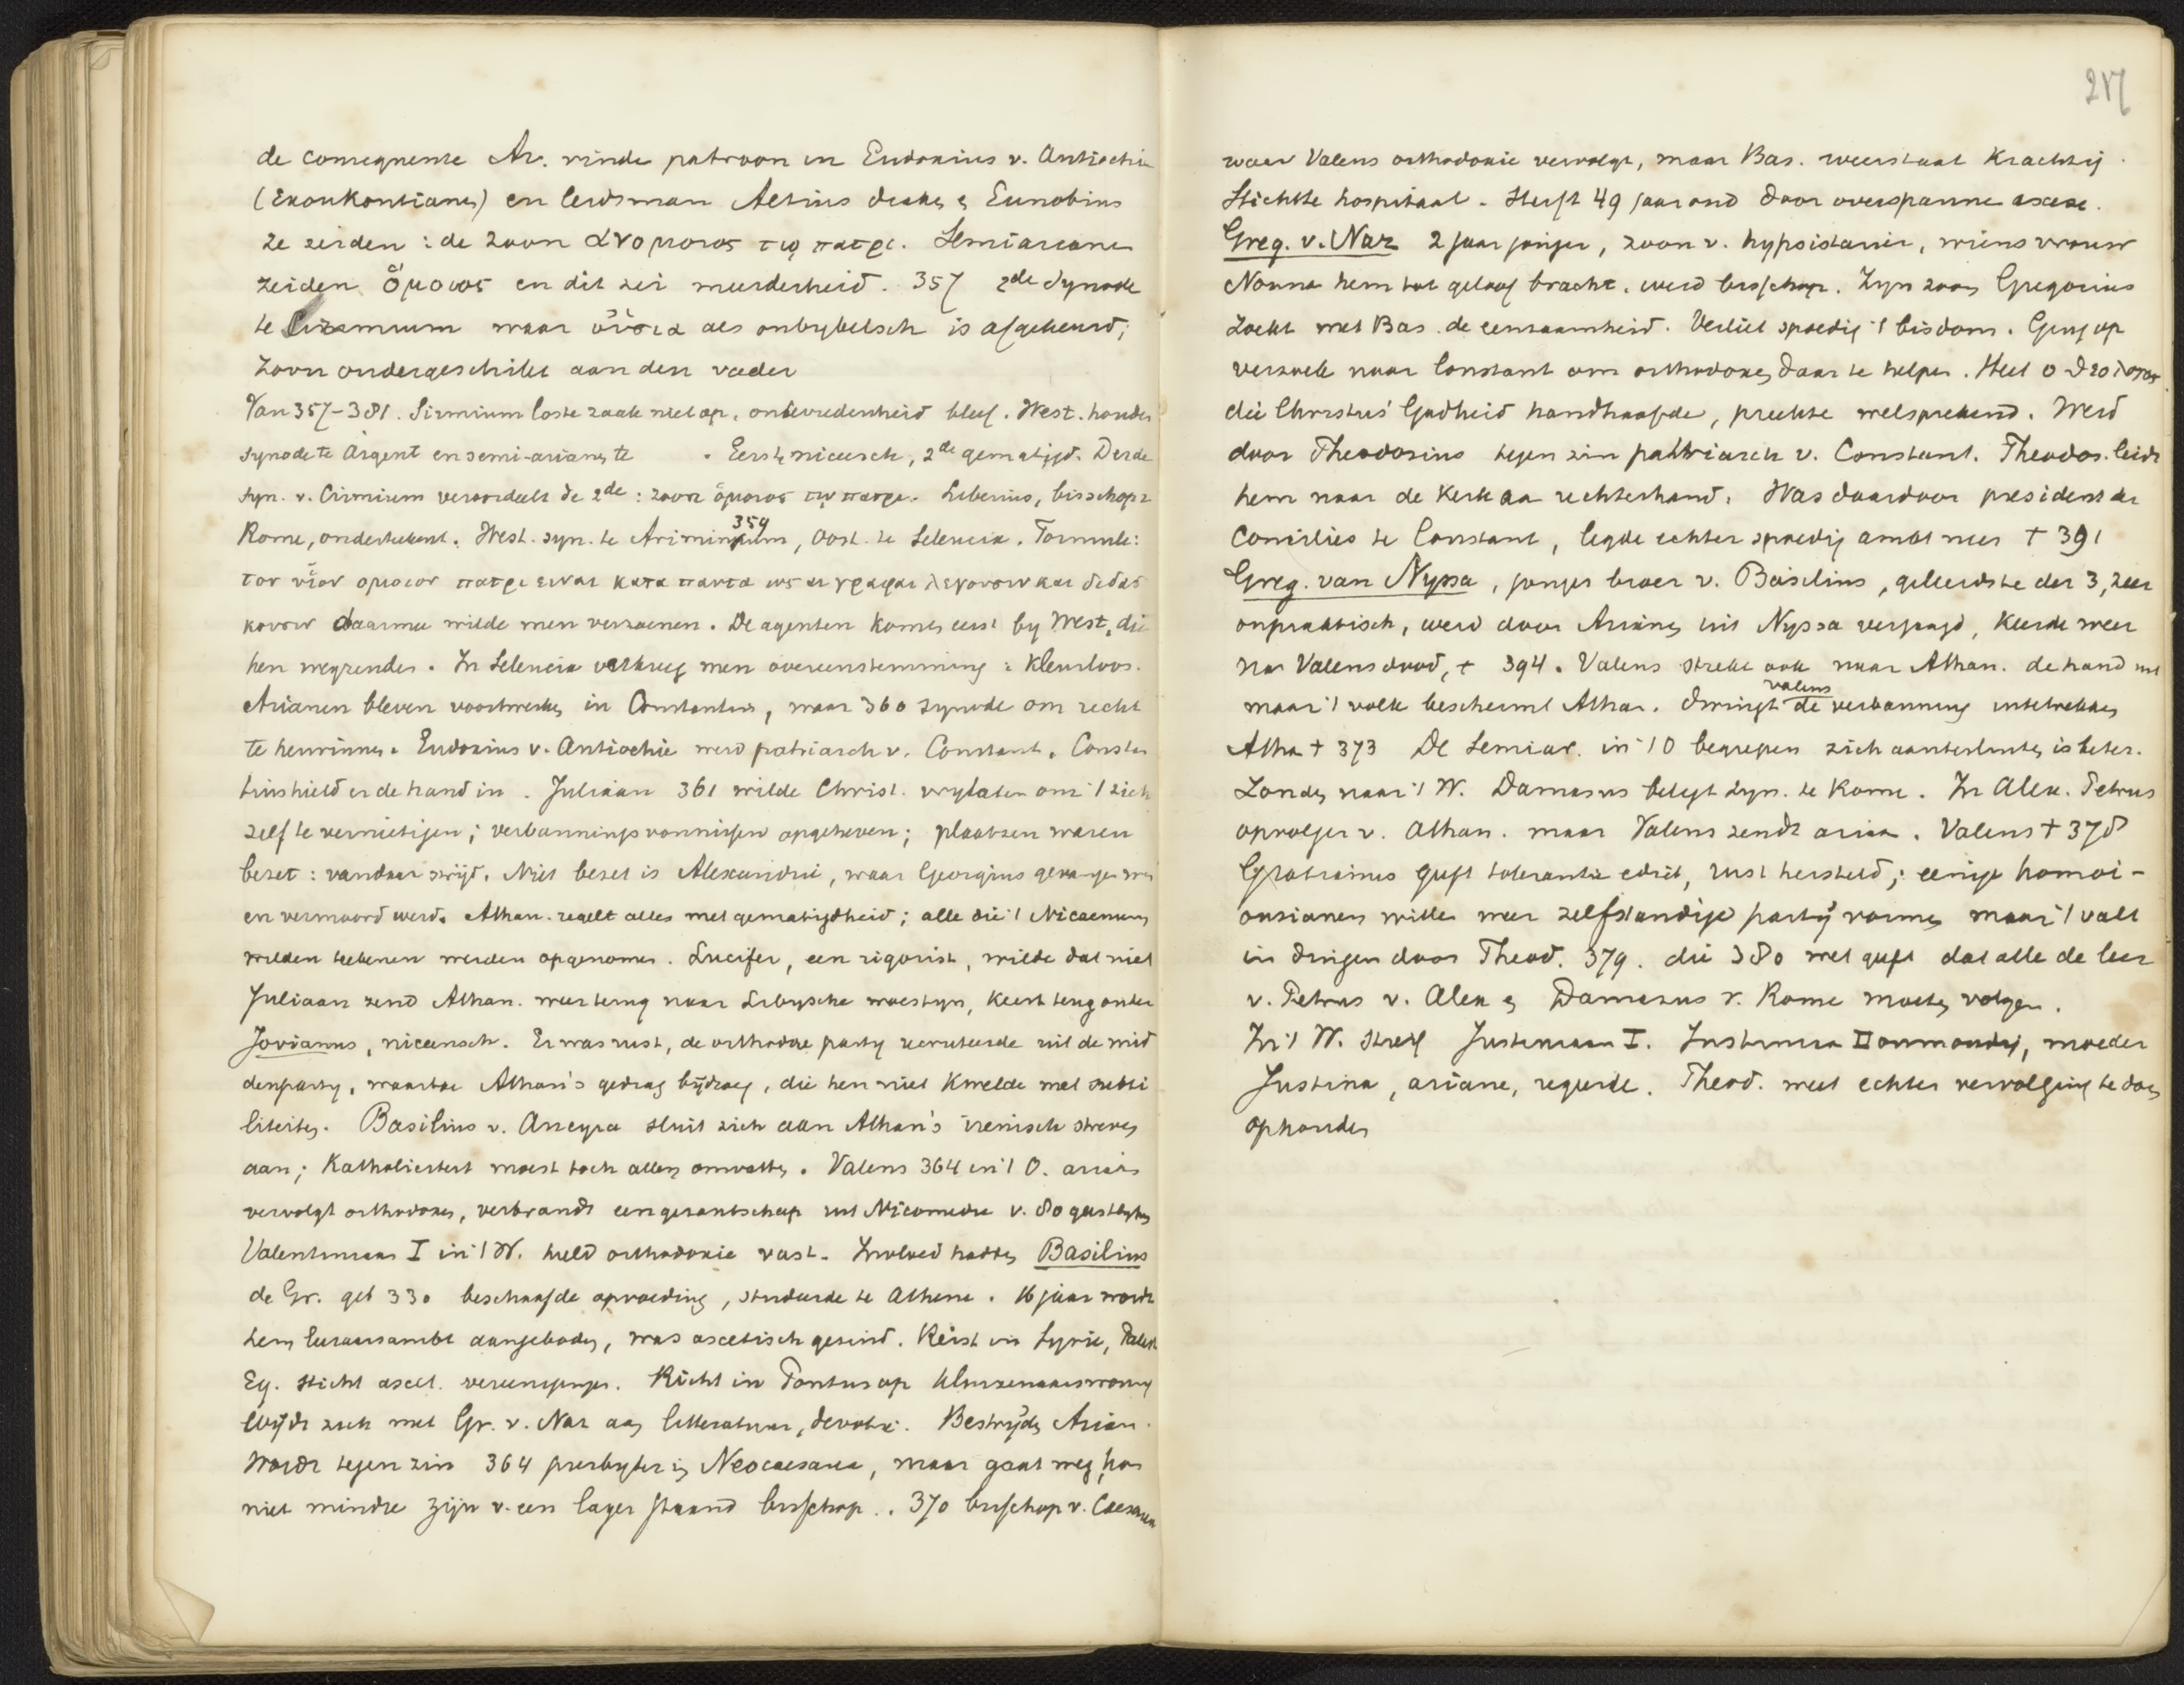 de consequente Ar. vinde patroon in Eudoxius v. Antiochie
(Exoukontianen) en leidsman Aetius diaken en Eunobius
ze zeiden : de zoon ανομοιος τῳ πατρι. Semiarianen
zeiden ὅμοιος en dit zei meerderheid. 357 2de Synode
te Sirmium waar οὐσια als onbybelsch is afgekeurd;
Zoon ondergeschikt aan den vader
Van 357-381. Sirmium loste zaak niet op, ontevredenheid bleef. West. houden
synode te Argent en semi-arianen te . Eerste niceesch, 2de gematigd. Derde
syn. v. Cirmium veroordeelt de 2de : zoon ὁμοιος τῳ πατρι. Liberius, bisschop v
Rome, ondertekent. West. syn. te Ariminium, Oost. te Seleucia. Formule:
359
τον υἱον ομοιον πατρι ειναι κατα παντα ως αι γραφαι λεγουσιν και διδασ
κουσιν daarmee wilde men verzoenen. De agenten komen eerst by West, die
hen wegzenden. In Seleucia verkreeg men overeenstemming : kleurloos.
Arianen bleven voortwerken in Constantius, waar 360 synode om recht
te herwinnen. Eudoxius v. Antiochie werd patriarch v. Constant. Constan
tius hield er de hand in. Juliaan 361 wilde Christ. vrylaten om 't zich
zelf te vernietigen; verbanningsvonnissen opgeheven; plaatsen waren
bezet : vandaar strijd. Niet bezet is Alexandrië, waar Georgius gevangen was
en vermoord werd. Athan. regelt alles met gematigdheid; alle die 't Nicaenum
wilden teekenen werden opgenomen. Lucifer, een rigorist, wilde dat niet
Juliaan zend Athan. weer terug naar Libysche woestyn, keert terug onder
Jovianus, niceensch. Er was rust, de orthodoxe party recruteerde uit de mid
denparty, waartoe Athan's gedrag bijdroeg, die hen niet kwelde met subti
liteiten. Basilius v. Ancyra sluit zich aan Athan's irenisch streven
aan; Katholiciteit moest toch allen omvatten. Valens 364 in 't O. ariaans
vervolgt orthodoxen, verbrandt een gezantschap uit Nicomedie v. 80 geestelyken
Valentiniaan I in 't W. hield orthodoxie vast. Invloed hadden Basilius
de Gr. geb 330 beschaafde opvoeding, studeerde te Athene. 16 jaar wordt
hem leeraarsambt aangeboden, was ascetisch gezind. Reist in Syrie, Palest
Eg. sticht ascet. vereenigingen. Richt in Pontus op kluizenaarswoning
Wijdt zich met Gr. v. Naz aan litteratuur, devotie. Bestrijdt Arian.
Wordt tegen zin 364 presbyter in Neocaesarea, maar gaat weg, kon
niet mindre zijn v. een lager staand bisschop. . 370 bisschop v. Caesarea
217
waar Valens orthodoxie vervolgt, maar Bas. weerstaat krachtig.
Stichtte hospitaal. Sterft 49 jaar oud door overspannen ascese.
Greg. v. Naz 2 jaar jonger, zoon v. hypsistarier, wiens vrouw
Nonna hem tot geloof bracht, werd bisschop. Zyn zoon Gregorius
zoekt met Bas. de eenzaamheid. Verliet spoedig 't bisdom. Ging op
verzoek naar Constant om orthodoxen daar te helpen. Heet ο θεολογος
die Christus' Godheid handhaafde, preekte welsprekend. Werd
door Theodosius tegen zin patriarch v. Constant. Theodos. leidt
hem naar de kerk aan rechterhand. Was daardoor president der
Concilies te Constant, legde echter spoedig ambt neer † 391
Greg. van Nyssa, jonger broer v. Basilius, geleerdste der 3, zeer
onpraktisch, werd door Arianen uit Nyssa verjaagd, keerde weer
na Valens dood, † 394. Valens strekt ook naar Athan. de hand uit
maar 't volk beschermt Athan. dwingt de verbanning intetrekken
valens
Atha † 373 De Semiar. in 't O begrepen zich aantesluiten is beter.
Zonden naar 't W. Damasus belegt Syn. te Rome. In Alex. Petrus
opvolger v. Athan. maar Valens zendt ariaan. Valens † 378
Gratianus geeft tolerantie edict, rust hersteld; eenige homoi-
ousianen willen weer zelfstandige partij vormen maar 't valt
in duigen door Theod. 379. die 380 wet geeft dat alle de leer
v. Petrus v. Alex en Damasus v. Rome moeten volgen.
In 't W. streef Justiniaan I. Justinian II onmondig, moeder
Justina, ariane, regeerde. Theod. weet echter vervolging te doen
ophouden